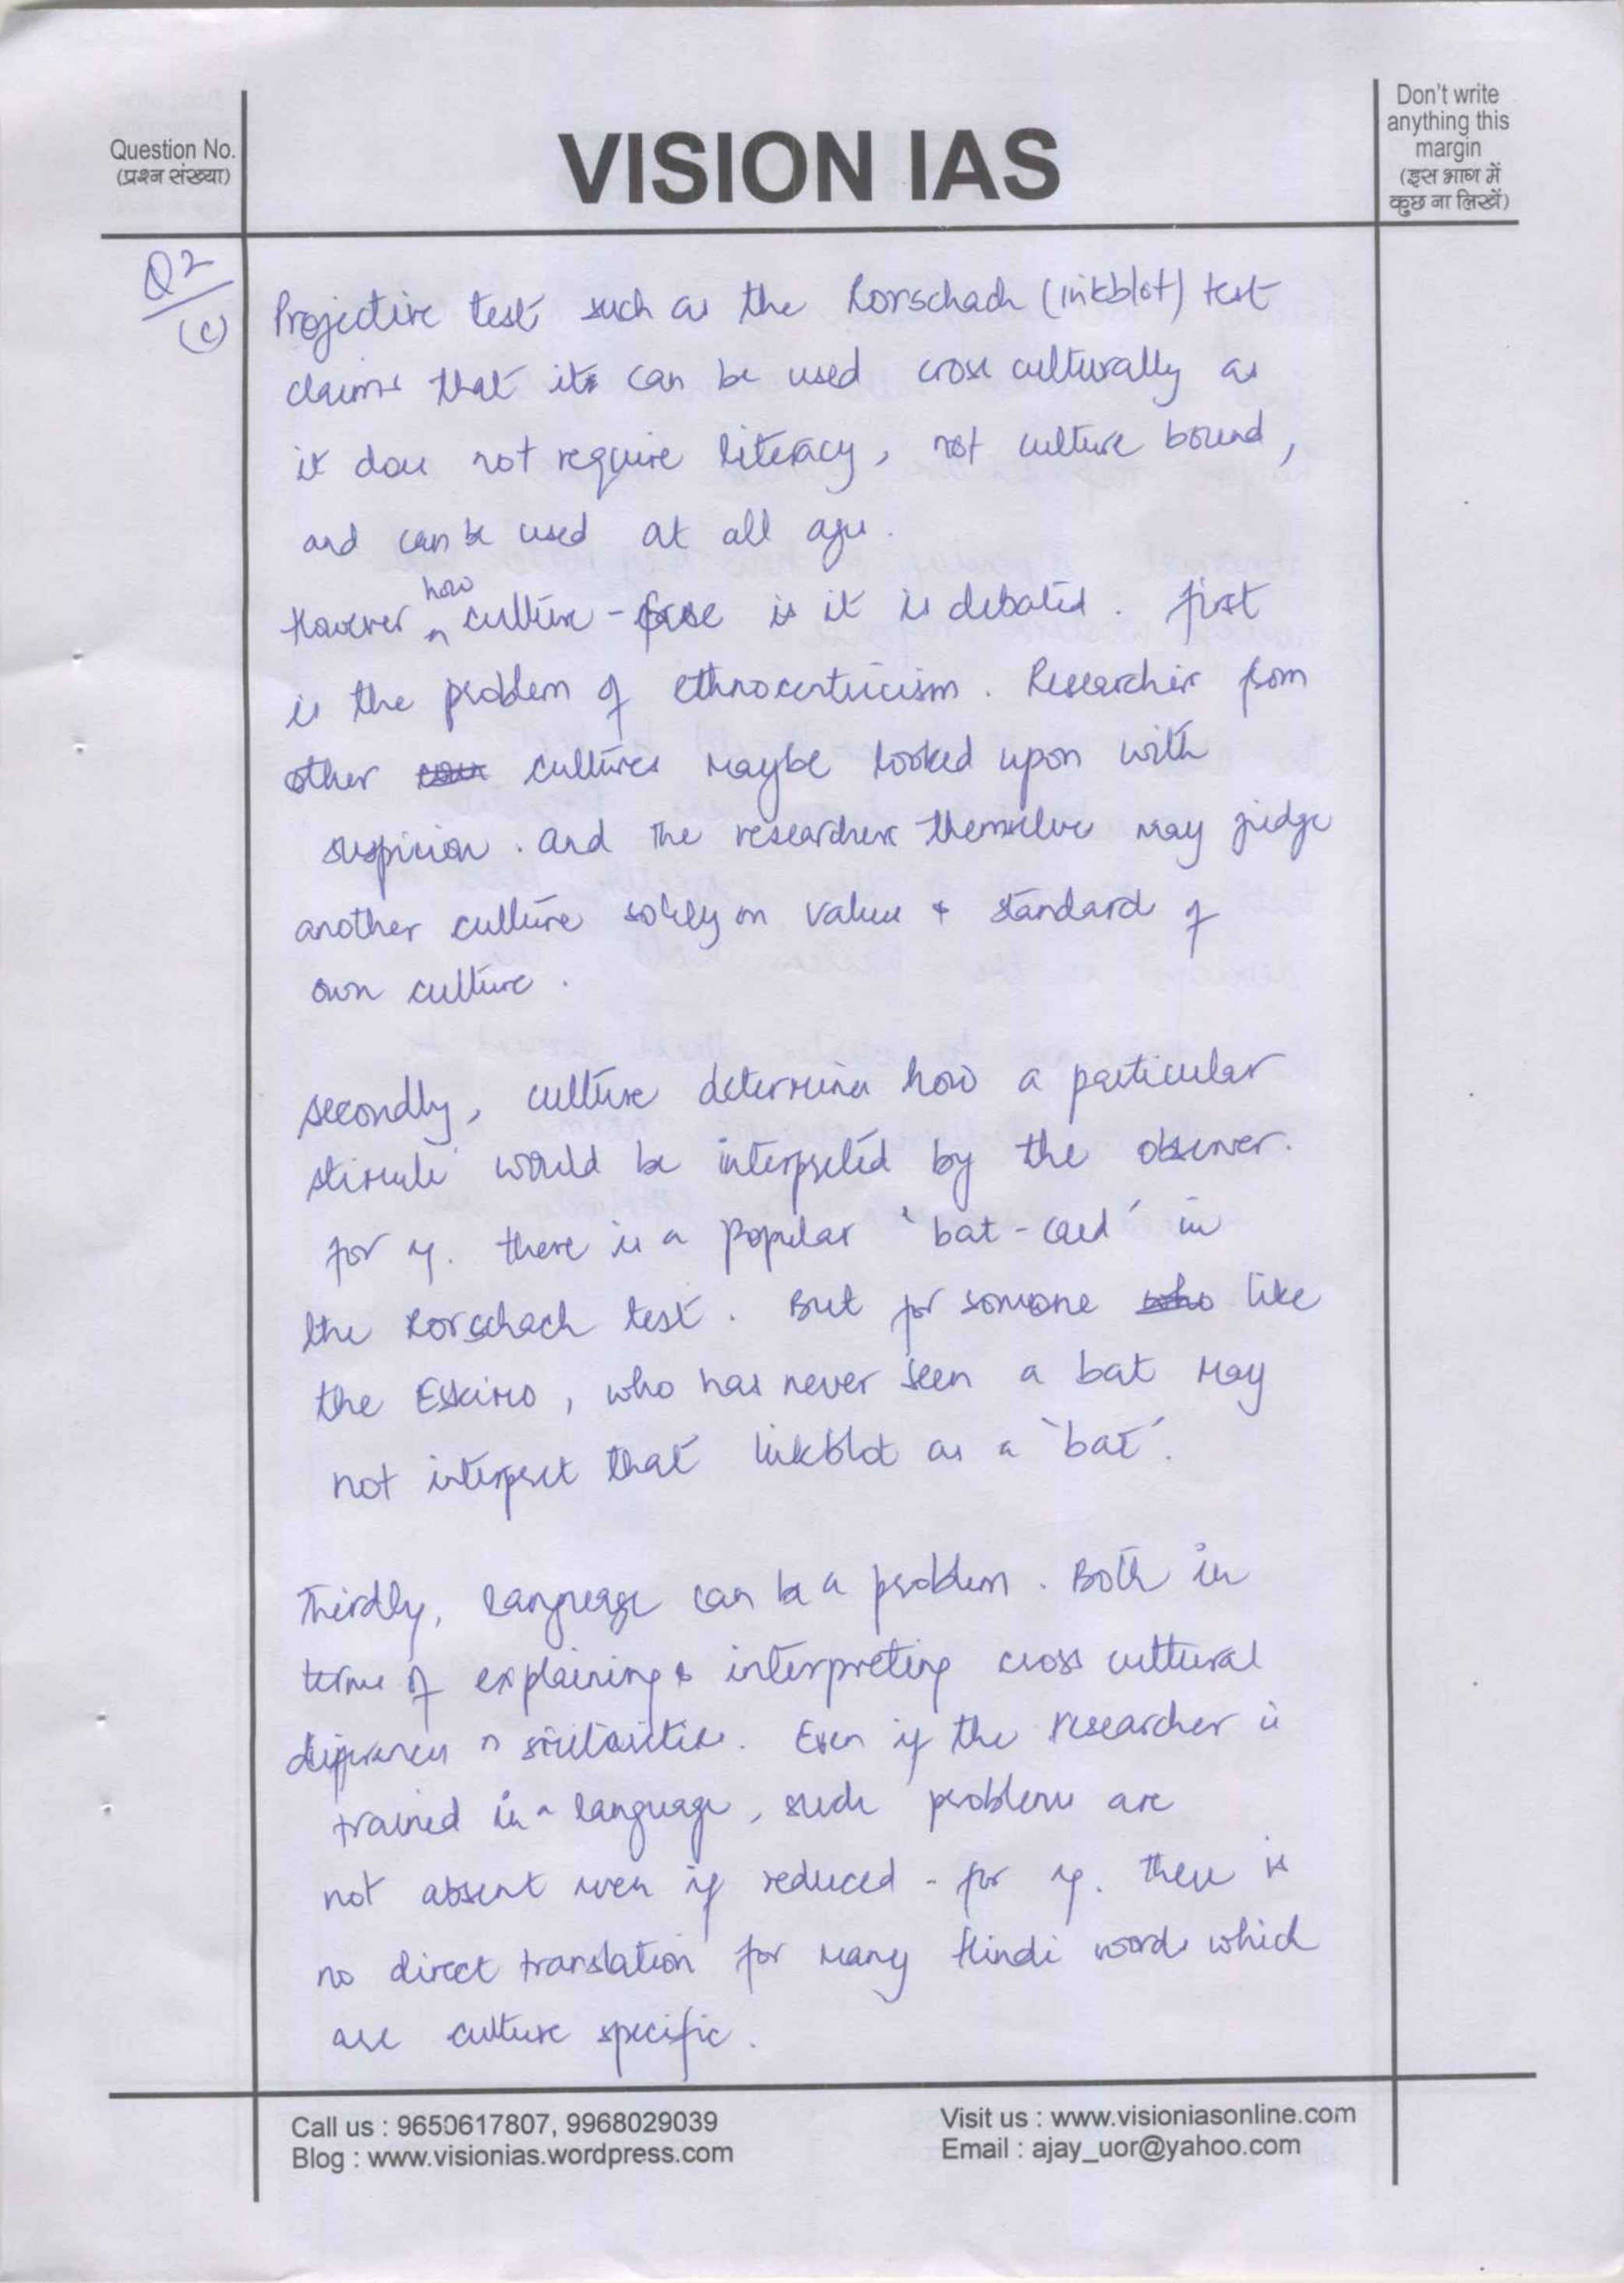 Question No.
(प्रश्न संख्या)
VISION IAS
Don't write
anything this
margin
(इस भाग में
कुछ ना लिखें)
Q2
(c)
Projective test such as the Rorschach (inkblot) test
claims that it can be used cross culturally as
it does not require literacy, not culture bound,
and can be used at all ages.
However how culture-free is it is debated. First
is the problem of ethnocentricism. Researcher from
other cultures maybe looked upon with
suspicion. And the researchers themselves may judge
another culture solely on values & standard of
own culture.
Secondly, culture determines how a particular
stimuli would be interpreted by the observer.
for eg. there is a popular 'bat-card' in
the Rorschach test. But for someone like
the Eskimo, who has never seen a bat may
not interpret that inkblot as a 'bat'.
Thirdly, language can be a problem. Both in
terms of explaining & interpreting cross cultural
differences n similarities. Even if the researcher is
trained in a language, such problems are
not absent even if reduced - for eg. there is
no direct translation for many Hindi words which
are culture specific.
Call us : 9650617807, 9968029039
Blog : www.visionias.wordpress.com
Visit us : www.visioniasonline.com
Email : ajay_uor@yahoo.com